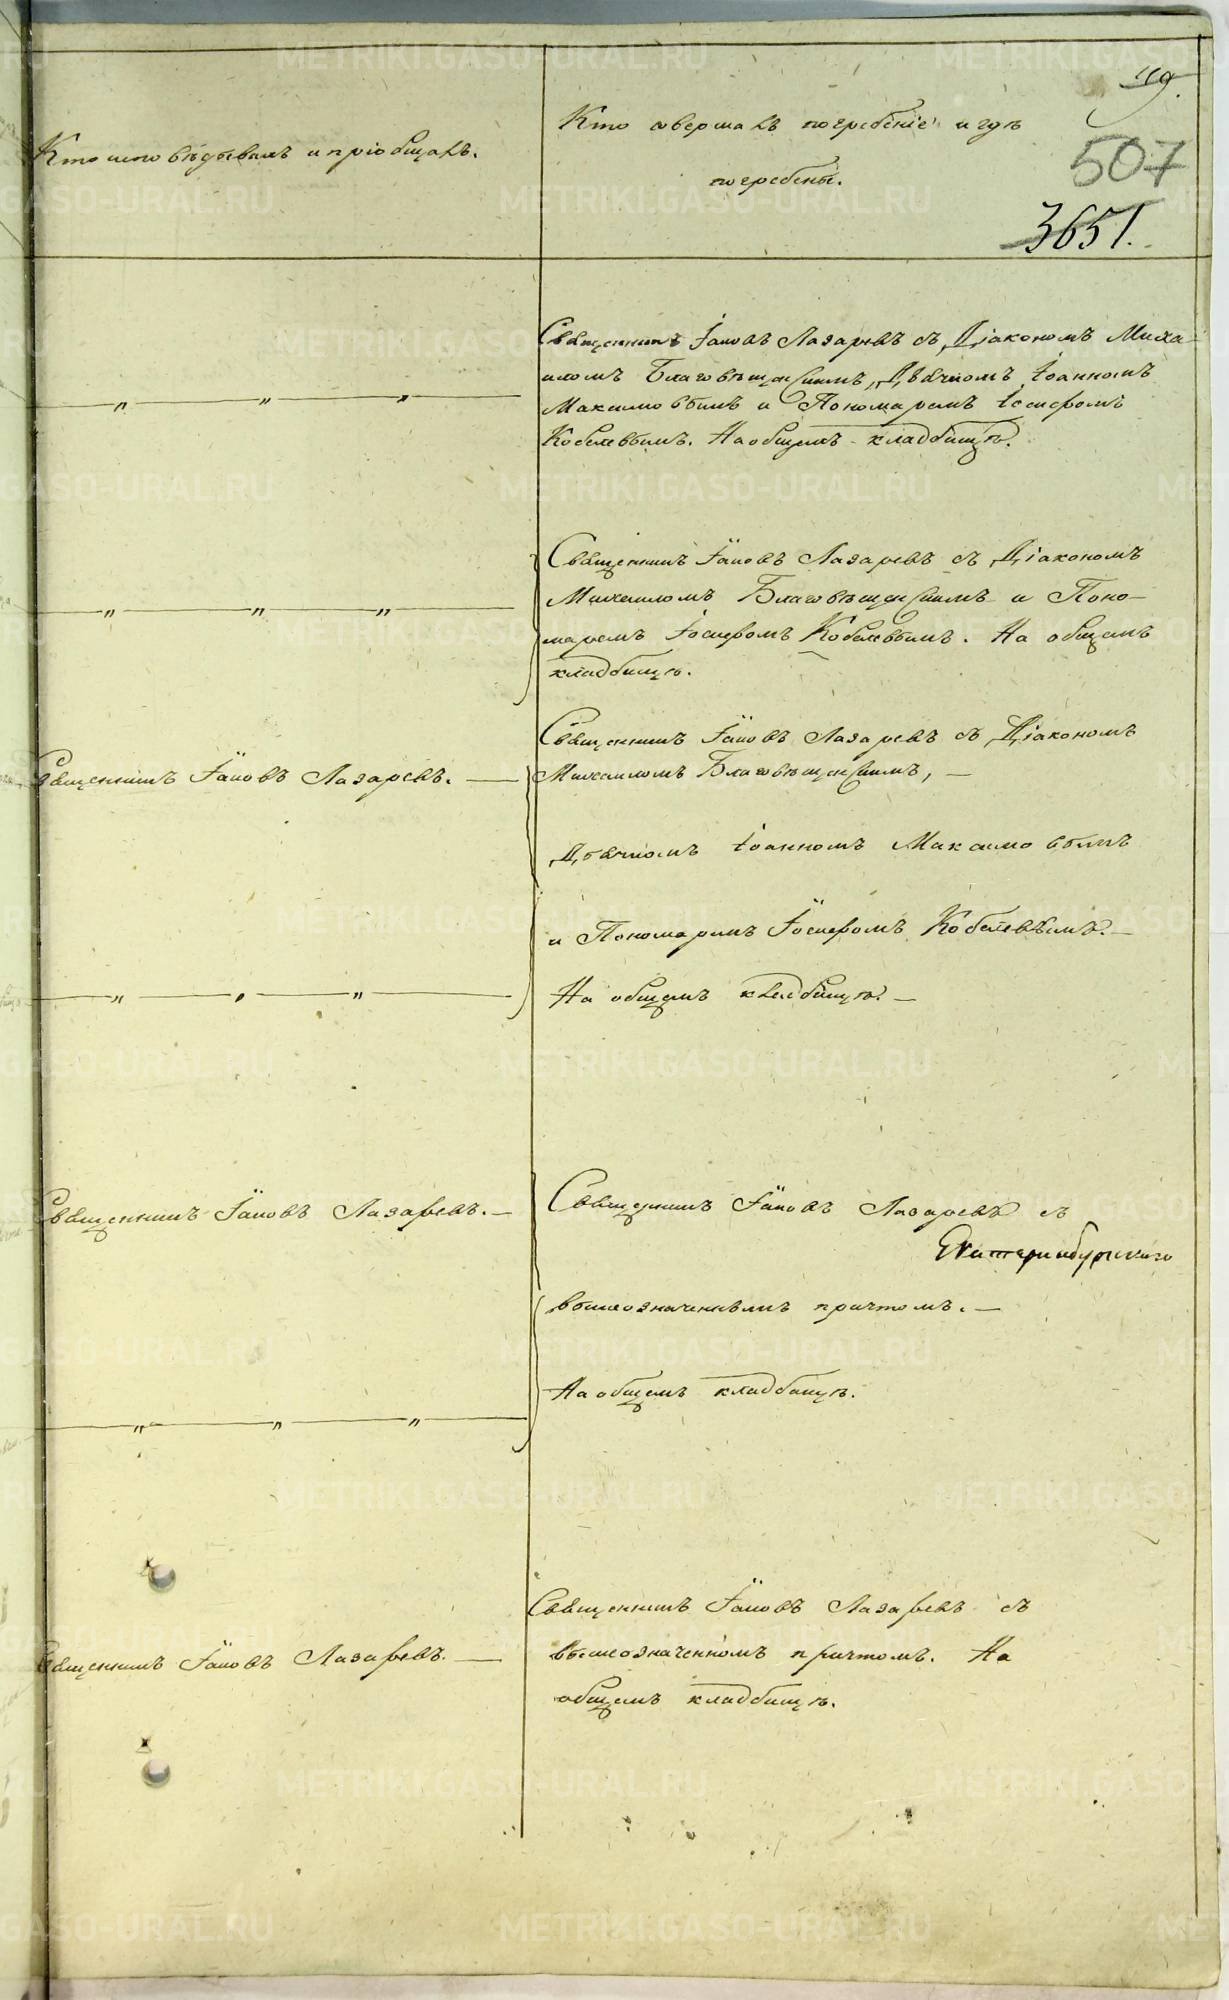 119.
507
3651.
Кто исповѣдывалъ и пріобщалъ.
Кто совершалъ погребеніе и гдѣ
погребены.
Священникъ Іаковъ Лазаревъ съ Діакономъ Миха-
иломъ Благовѣщенскимъ, Дьячкомъ Іоанномъ
— „ — „ — „ —
Максимовымъ и Пономаремъ Іосифомъ
Кобелевымъ. На общемъ кладбищѣ.
Священникъ Іаковъ Лазаревъ съ Діакономъ
— „ — „ — „ —
Михаиломъ Благовѣщенскимъ и Поно-
маремъ Іосифомъ Кобелевымъ. На общемъ
кладбищѣ.
Священникъ Іаковъ Лазаревъ съ Діакономъ
Священникъ Іаковъ Лазаревъ. —
Михаиломъ Благовѣщенскимъ, —
Дьячкомъ Іоанномъ Максимовымъ
и Пономаремъ Іосифомъ Кобелевымъ. —
— „ — „ — „ —
На общемъ кладбищѣ. —
Священникъ Іаковъ Лазаревъ. —
Священникъ Іаковъ Лазаревъ съ
Екатеринбургскаго
вышеозначеннымъ причтомъ. —
На общемъ кладбищѣ.
— „ — „ — „ —
Священникъ Іаковъ Лазаревъ съ
Священникъ Іаковъ Лазаревъ. —
вышеозначенномъ причтомъ. На
общемъ кладбищѣ.
METRIKI.GASO-URAL.RU